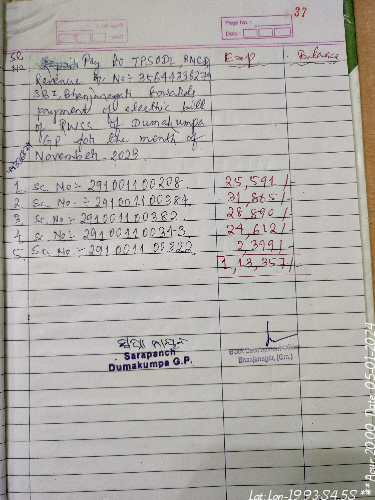 Page No.:
Date:
37
SL No
Exp
Balance
Pay to TPSODL BNGR
Revenue A/c No:- 35644336279
SBI, Bhanjanagar towards
payment of electric bill
of PWSS of Dumakumpa
GP for the month of
November 2023
1 Sc. No:- 291001100208 25,591/-
2 Sc. No:- 291001100384 31,865/-
3 Sc. No:- 291001100382 28,890/-
4 Sc. No:- 291001100343 24,612/-
5 Sc. No:- 291001100322 2,399/-
1,13,357/-
Sarapanch
Dumakumpa G.P.
Block Development Officer
Bhanjanagar, (Gm.)
Lat: Lon-19.93:84.55 *** Agur: 2000 Date: 05-01-2024